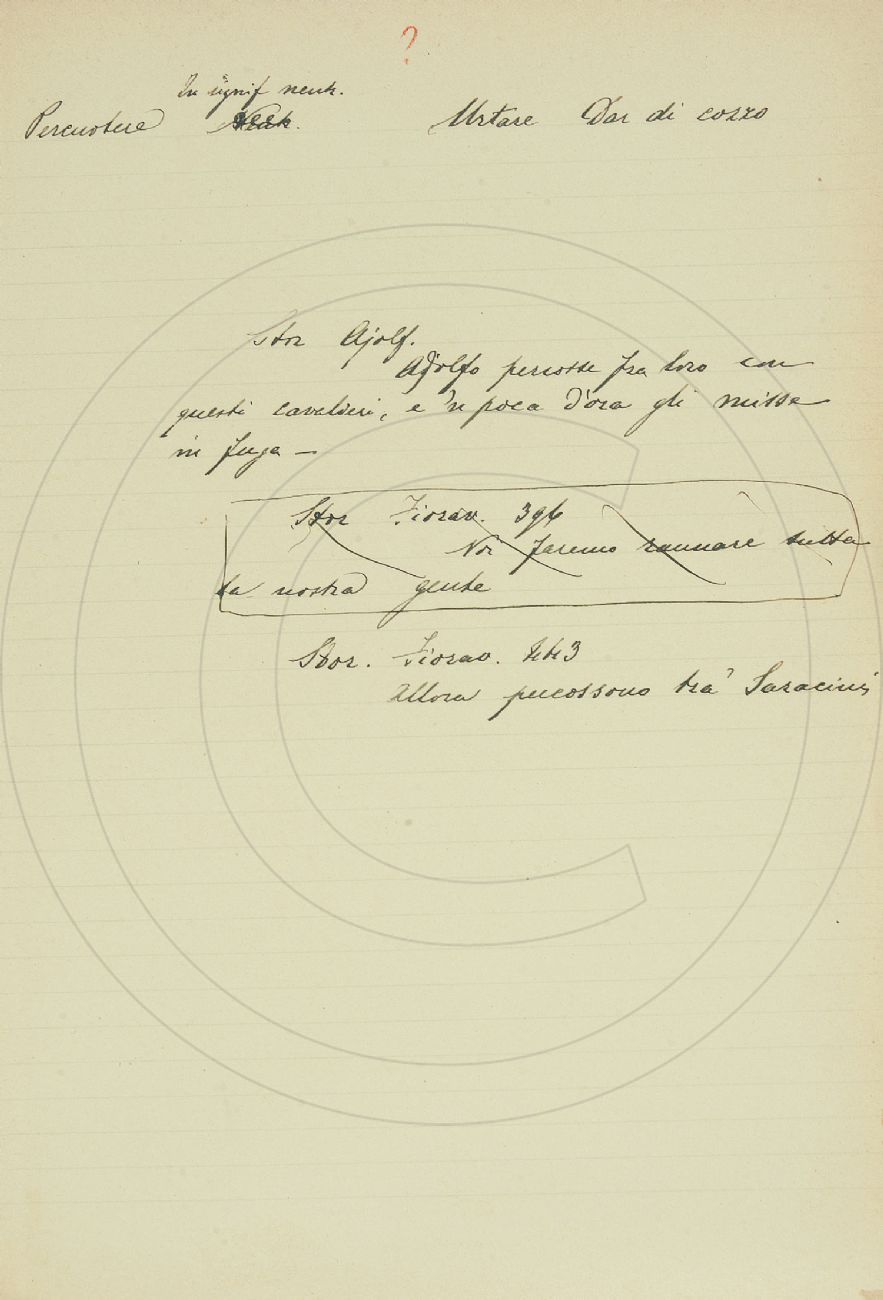 ?
In signif neutr.
Percuotere Neutr. Urtare Dar di cozzo
Stor Ajolf.
Ajolfo percosse fra loro con
questi cavalieri, e 'n poca d'ora gli misse
in fuga —
Stor Fiorav. 396
Noi faremo raunare tutta
la nostra gente
Stor. Fiorav. 443
Allora percossono tra' Saracini